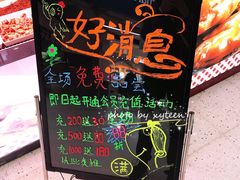 好消息
photo by xyteen
全场免费品尝
即日起开通会员充值活动
充200送30
充500送
充1000送180
满